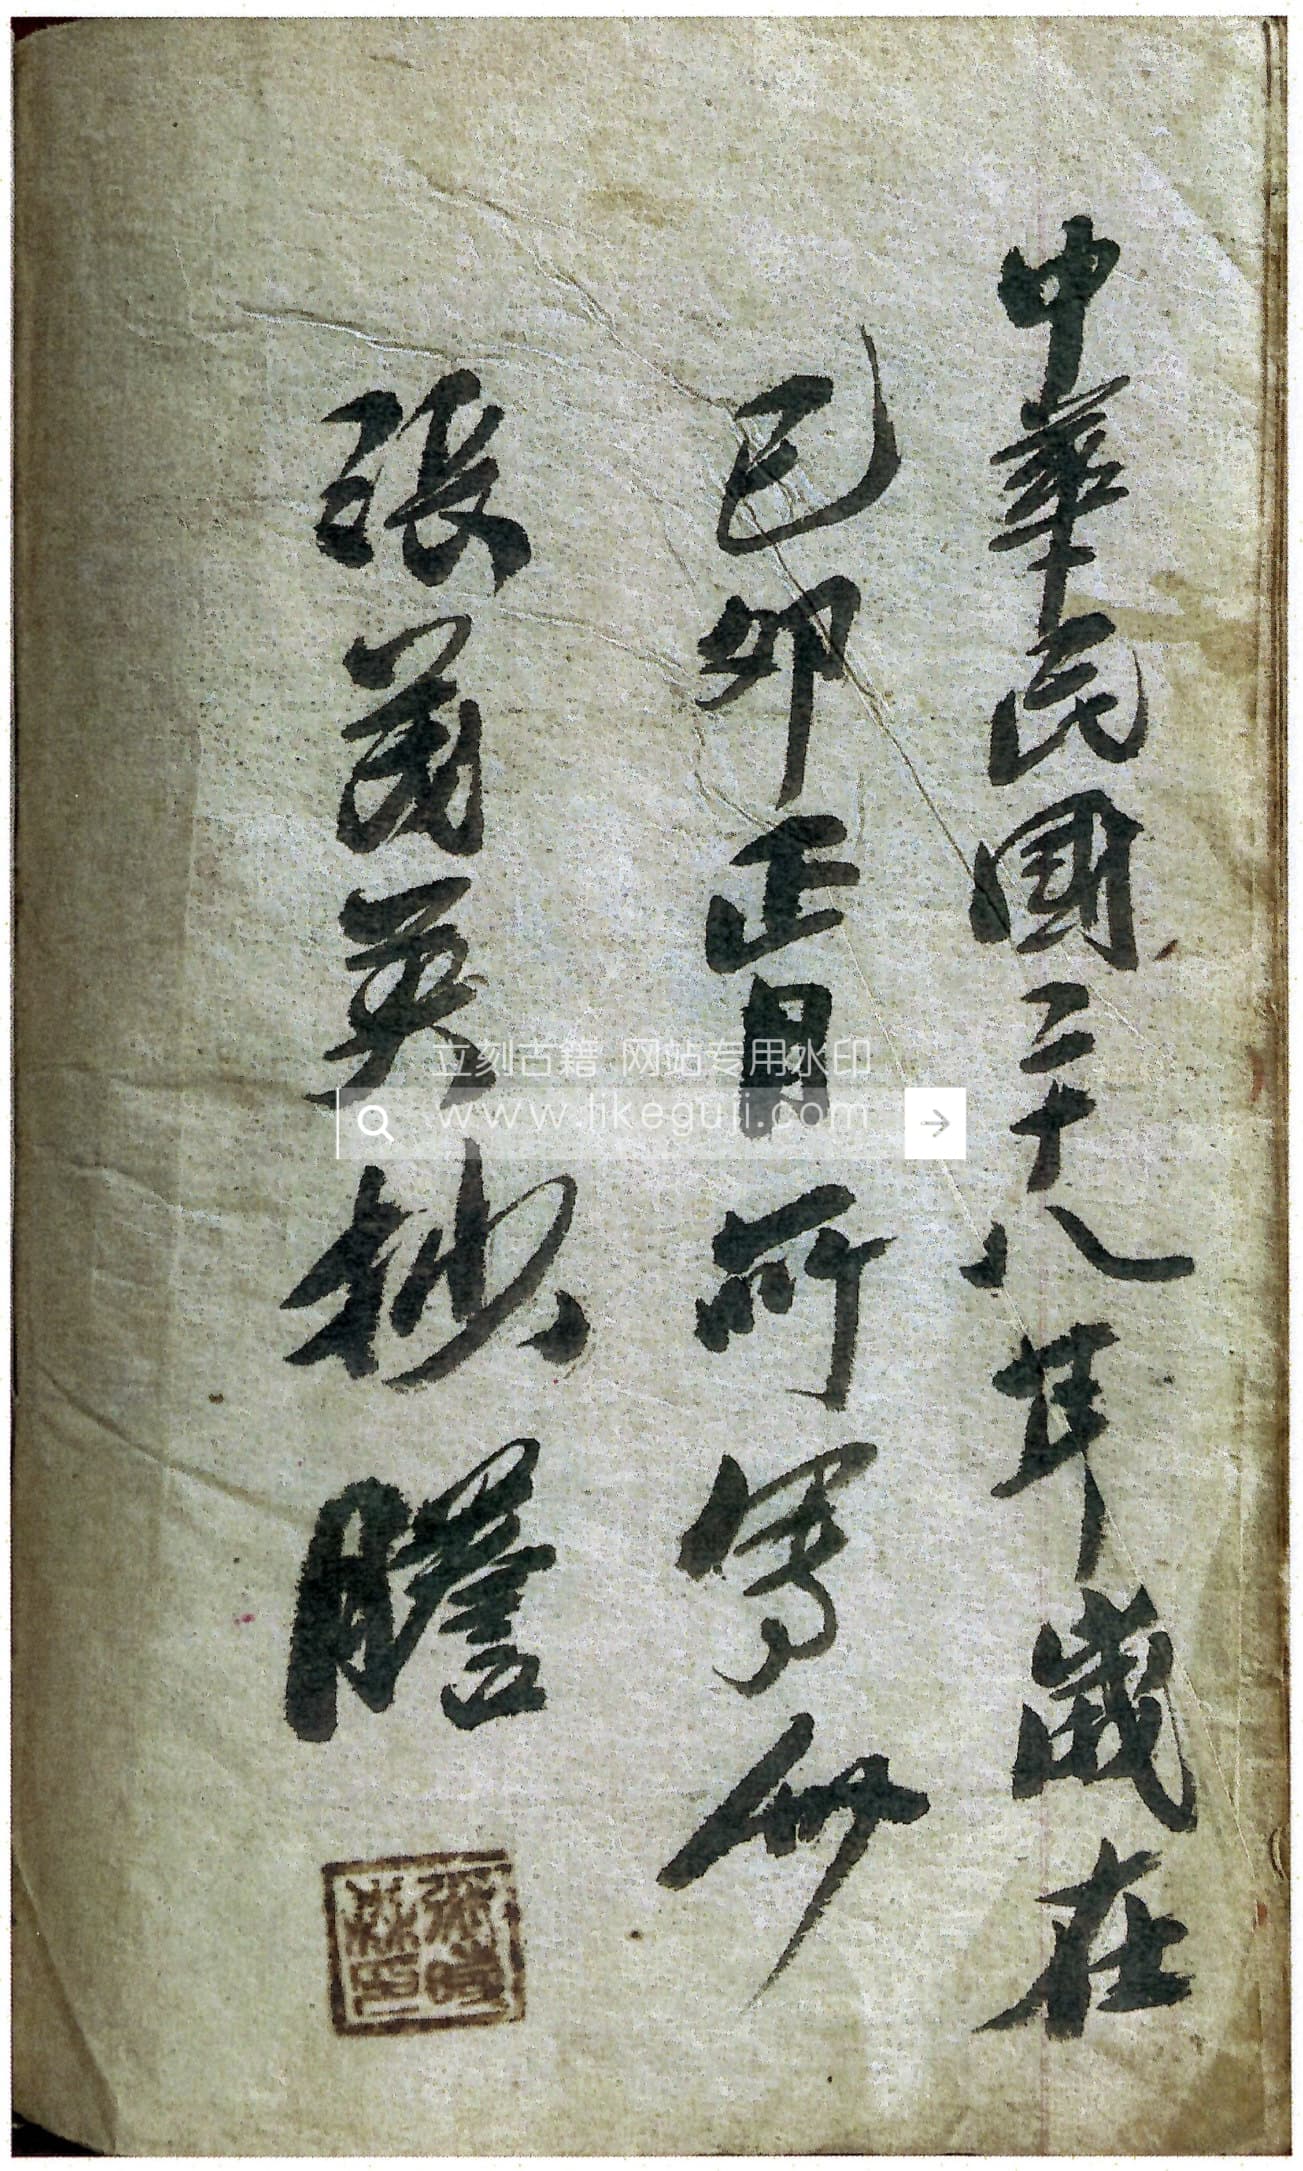 中華民國二十八年歲在
己卯正月所寫册
張萬英抄謄
立刻古籍 网站专用水印
www.likeguji.com